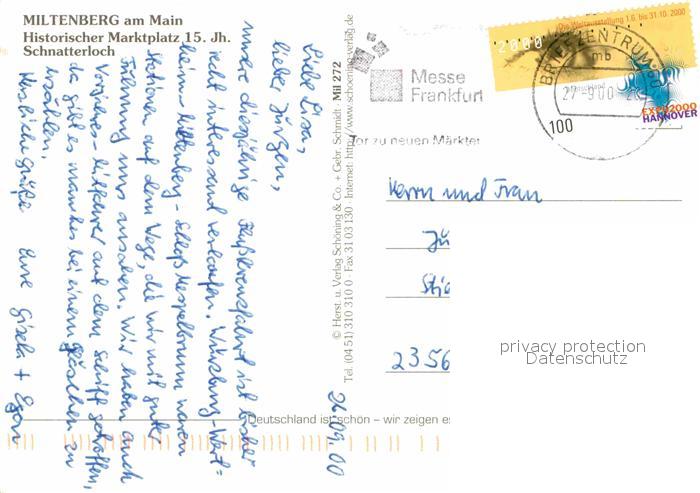 MILTENBERG am Main
Historischer Marktplatz 15. Jh.
Schnatterloch
26.09.00
Liebe Lisa,
lieber Jürgen,
unsere diesjährige Flußkreuzfahrt ist bisher
recht interessant verlaufen. Würzburg - Wert=
heim - Miltenberg - Schloß Mespelbrunn waren
Stationen auf dem Wege, die wir mit guter
Führung uns ansahen. Wir haben auch
Vorjahres - Mitfahrer auf dem Schiff getroffen,
da gibt es manches bei einem Gläschen zu
erzählen.
Herzliche Grüße Eure Gisela + Egon
© Herst. u. Verlag Schöning & Co. + Gebr. Schmidt · Mil 272
Tel. (04 51) 310 310 0 · Fax 31 03 130 · Internet: http://www.schoening-verlag.de
Messe
Frankfurt
Tor zu neuen Märkten
Die Weltausstellung 1.6. bis 31.10. 2000
2000
Deutschland
EXPO2000
HANNOVER
BRIEFZENTRUM
mb
27-9.00
100
Herrn und Frau
Jü
2356
privacy protection
Datenschutz
Deutschland ist schön – wir zeigen es